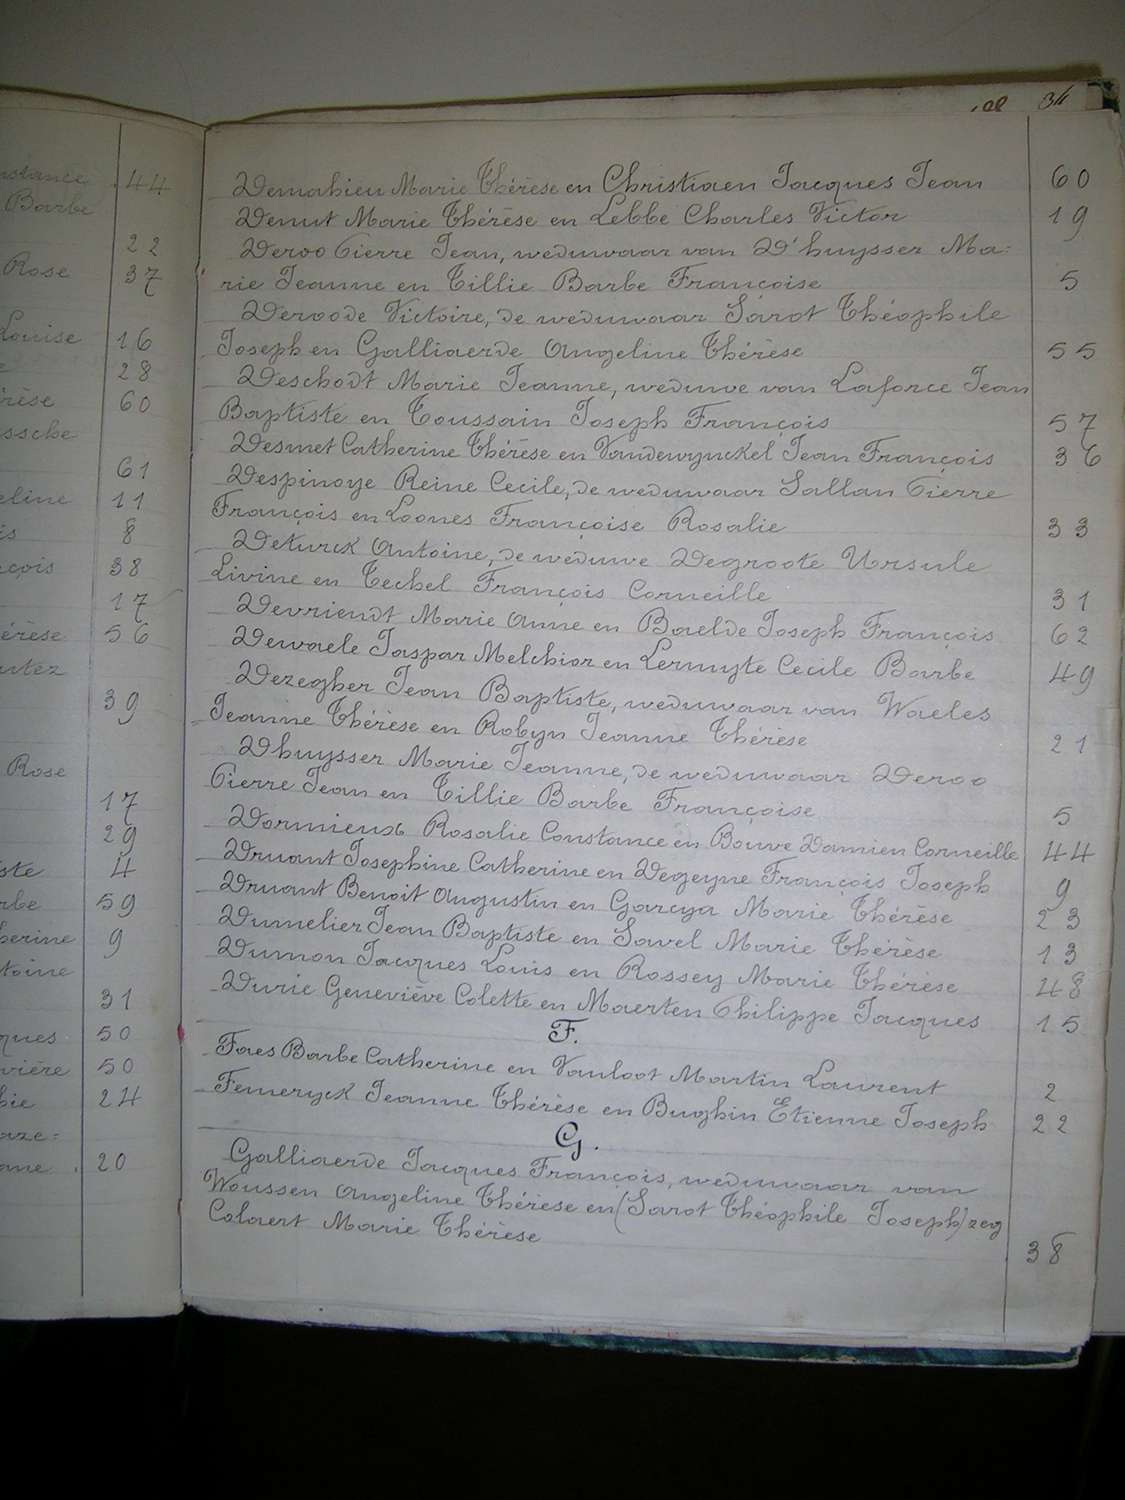 34
nstance 44
Barbe
22
Rose 37
Louise 16
28
érèse 60
ssche
61
eline 11
is 8
nçois 38
17
érèse 56
utez
39
Rose
17
29
iste 4
rbe 59
herine 9
toine
31
ques 50
vière 50
hie 24
aze=
ane 20
Demahieu Marie Thérèse en Christiaen Jacques Jean 60
Demut Marie Thérèse en Lebbe Charles Victor 19
Deroo Pierre Jean, weduwaar van D'huysser Ma=
rie Jeanne en Tillie Barbe Françoise 5
Deroode Victoire, de weduwaar Sarot Théophile
Joseph en Galliaerde Angeline Thérèse 55
Deschodt Marie Jeanne, weduwe van Laforce Jean
Baptiste en Toussain Joseph François 57
Desmet Catherine Thérèse en Vandewynckel Jean François 36
Despinoye Reine Cecile, de weduwaar Sallan Pierre
François en Loones Françoise Rosalie 33
Deturck Antoine, de weduwe Degroote Ursule
Livine en Techel François Corneille 31
Devriendt Marie Anne en Baelde Joseph François 62
Dewaele Jaspar Melchior en Lermyte Cecile Barbe 49
Dezegher Jean Baptiste, weduwaar van Waeles
Jeanne Thérèse en Robyn Jeanne Thérèse 21
Dhuysser Marie Jeanne, de weduwaar Deroo
Pierre Jean en Tillie Barbe Françoise 5
Dormieux Rosalie Constance en Bouve Damien Corneille 44
Druant Josephine Catherine en Degeyne François Joseph 9
Druant Benoit Augustin en Garcya Marie Thérèse 23
Dumelier Jean Baptiste en Savel Marie Thérèse 13
Dumon Jacques Louis en Rossey Marie Thérèse 48
Durie Geneviève Colette en Maerten Philippe Jacques 15
F.
Faes Barbe Catherine en Vanloot Martin Laurent 2
Femeryck Jeanne Thérèse en Bughin Etienne Joseph 22
G.
Galliaerde Jacques François, weduwaar van
Woussen Angeline Thérèse en (Sarot Théophile Joseph) zeg
Colaert Marie Thérèse 38